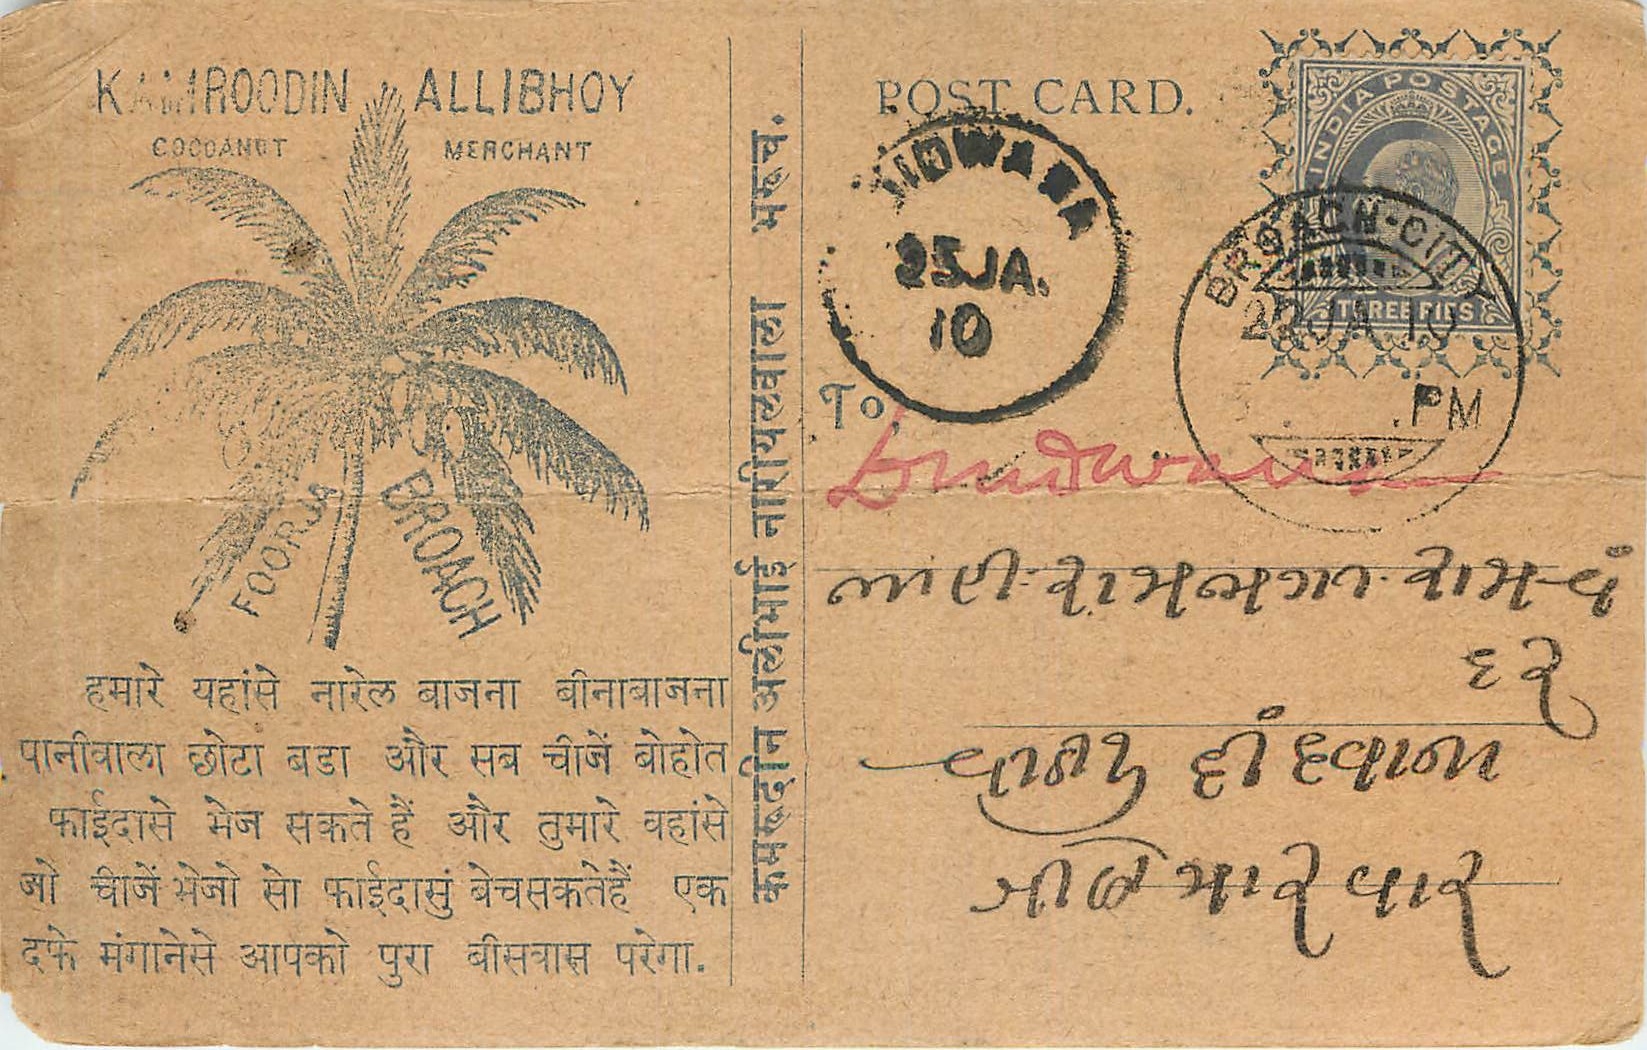 KAMROODIN ALLIBHOY
COCOANUT MERCHANT
FOORJA BROACH
हमारे यहांसे नारेल बाजना बीनाबाजना
पानीवाला छोटा बडा और सब चीजें बोहोत
फाईदासे भेज सकते हैं और तुमारे वहांसे
जो चीजें भेजो सो फाईदासुं बेचसकतेहैं एक
दफे मंगानेसे आपको पुरा बीसवास परेगा.
कमरूदीन अलीभाई नारीयलवाला भरूच.
POST CARD.
INDIA POSTAGE
THREE PIES
BROACH-CITY
22JA 10
.PM
DIDWANA
25JA.
10
To,
Dindwana
દીંદવાના
મારવાર